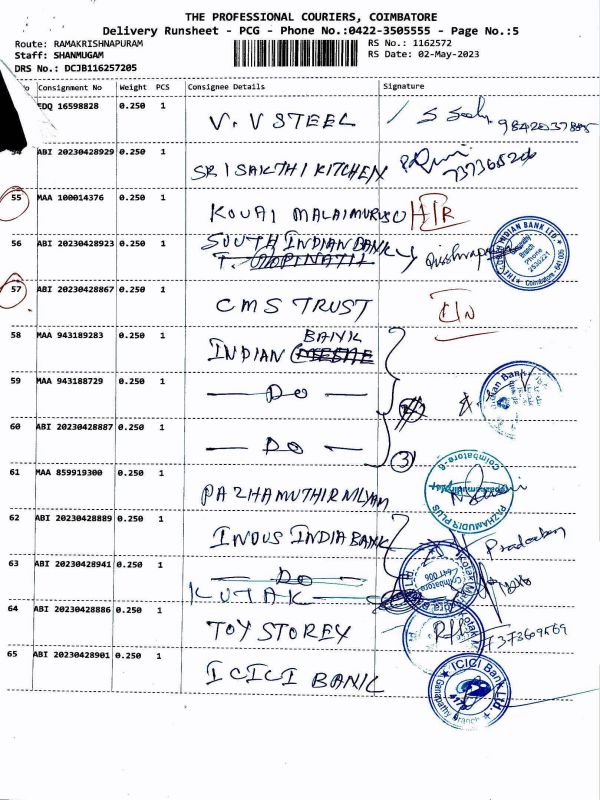 THE PROFESSIONAL COURIERS, COIMBATORE
Delivery Runsheet - PCG - Phone No.:0422-3505555 - Page No.:5
Route: RAMAKRISHNAPURAM RS No.: 1162572
Staff: SHANMUGAM RS Date: 02-May-2023
DRS No.: DCJB116257205
No Consignment No Weight PCS Consignee Details Signature
EDQ 16598828 0.250 1 V.V STEEL
54 ABI 20230428929 0.250 1 SRI SAKTHI KITCHEN
55 MAA 100014376 0.250 1 KOVAI MALAIMURUSU
56 ABI 20230428923 0.250 1 SOUTH INDIAN BANK
T. GOPINATH
THE SOUTH INDIAN BANK LTD.
Ganapathy
Branch
Phone
2530221
Coimbatore - 641 006
57 ABI 20230428867 0.250 1 CMS TRUST
58 MAA 943189283 0.250 1 INDIAN BANK
59 MAA 943188729 0.250 1 DO
Indian Bank
60 ABI 20230428887 0.250 1 DO
3
61 MAA 859919300 0.250 1 PAZHAMUTHIR NILYAM
PAZHAMUDIR PLUS
Coimbatore-6
62 ABI 20230428889 0.250 1 INDUS INDIA BANK
63 ABI 20230428941 0.250 1 DO
KOTAK
Coimbatore
641 006
64 ABI 20230428886 0.250 1 TOY STOREY
65 ABI 20230428901 0.250 1 ICICI BANK
ICICI Bank Ltd.
Ganapathy Branch